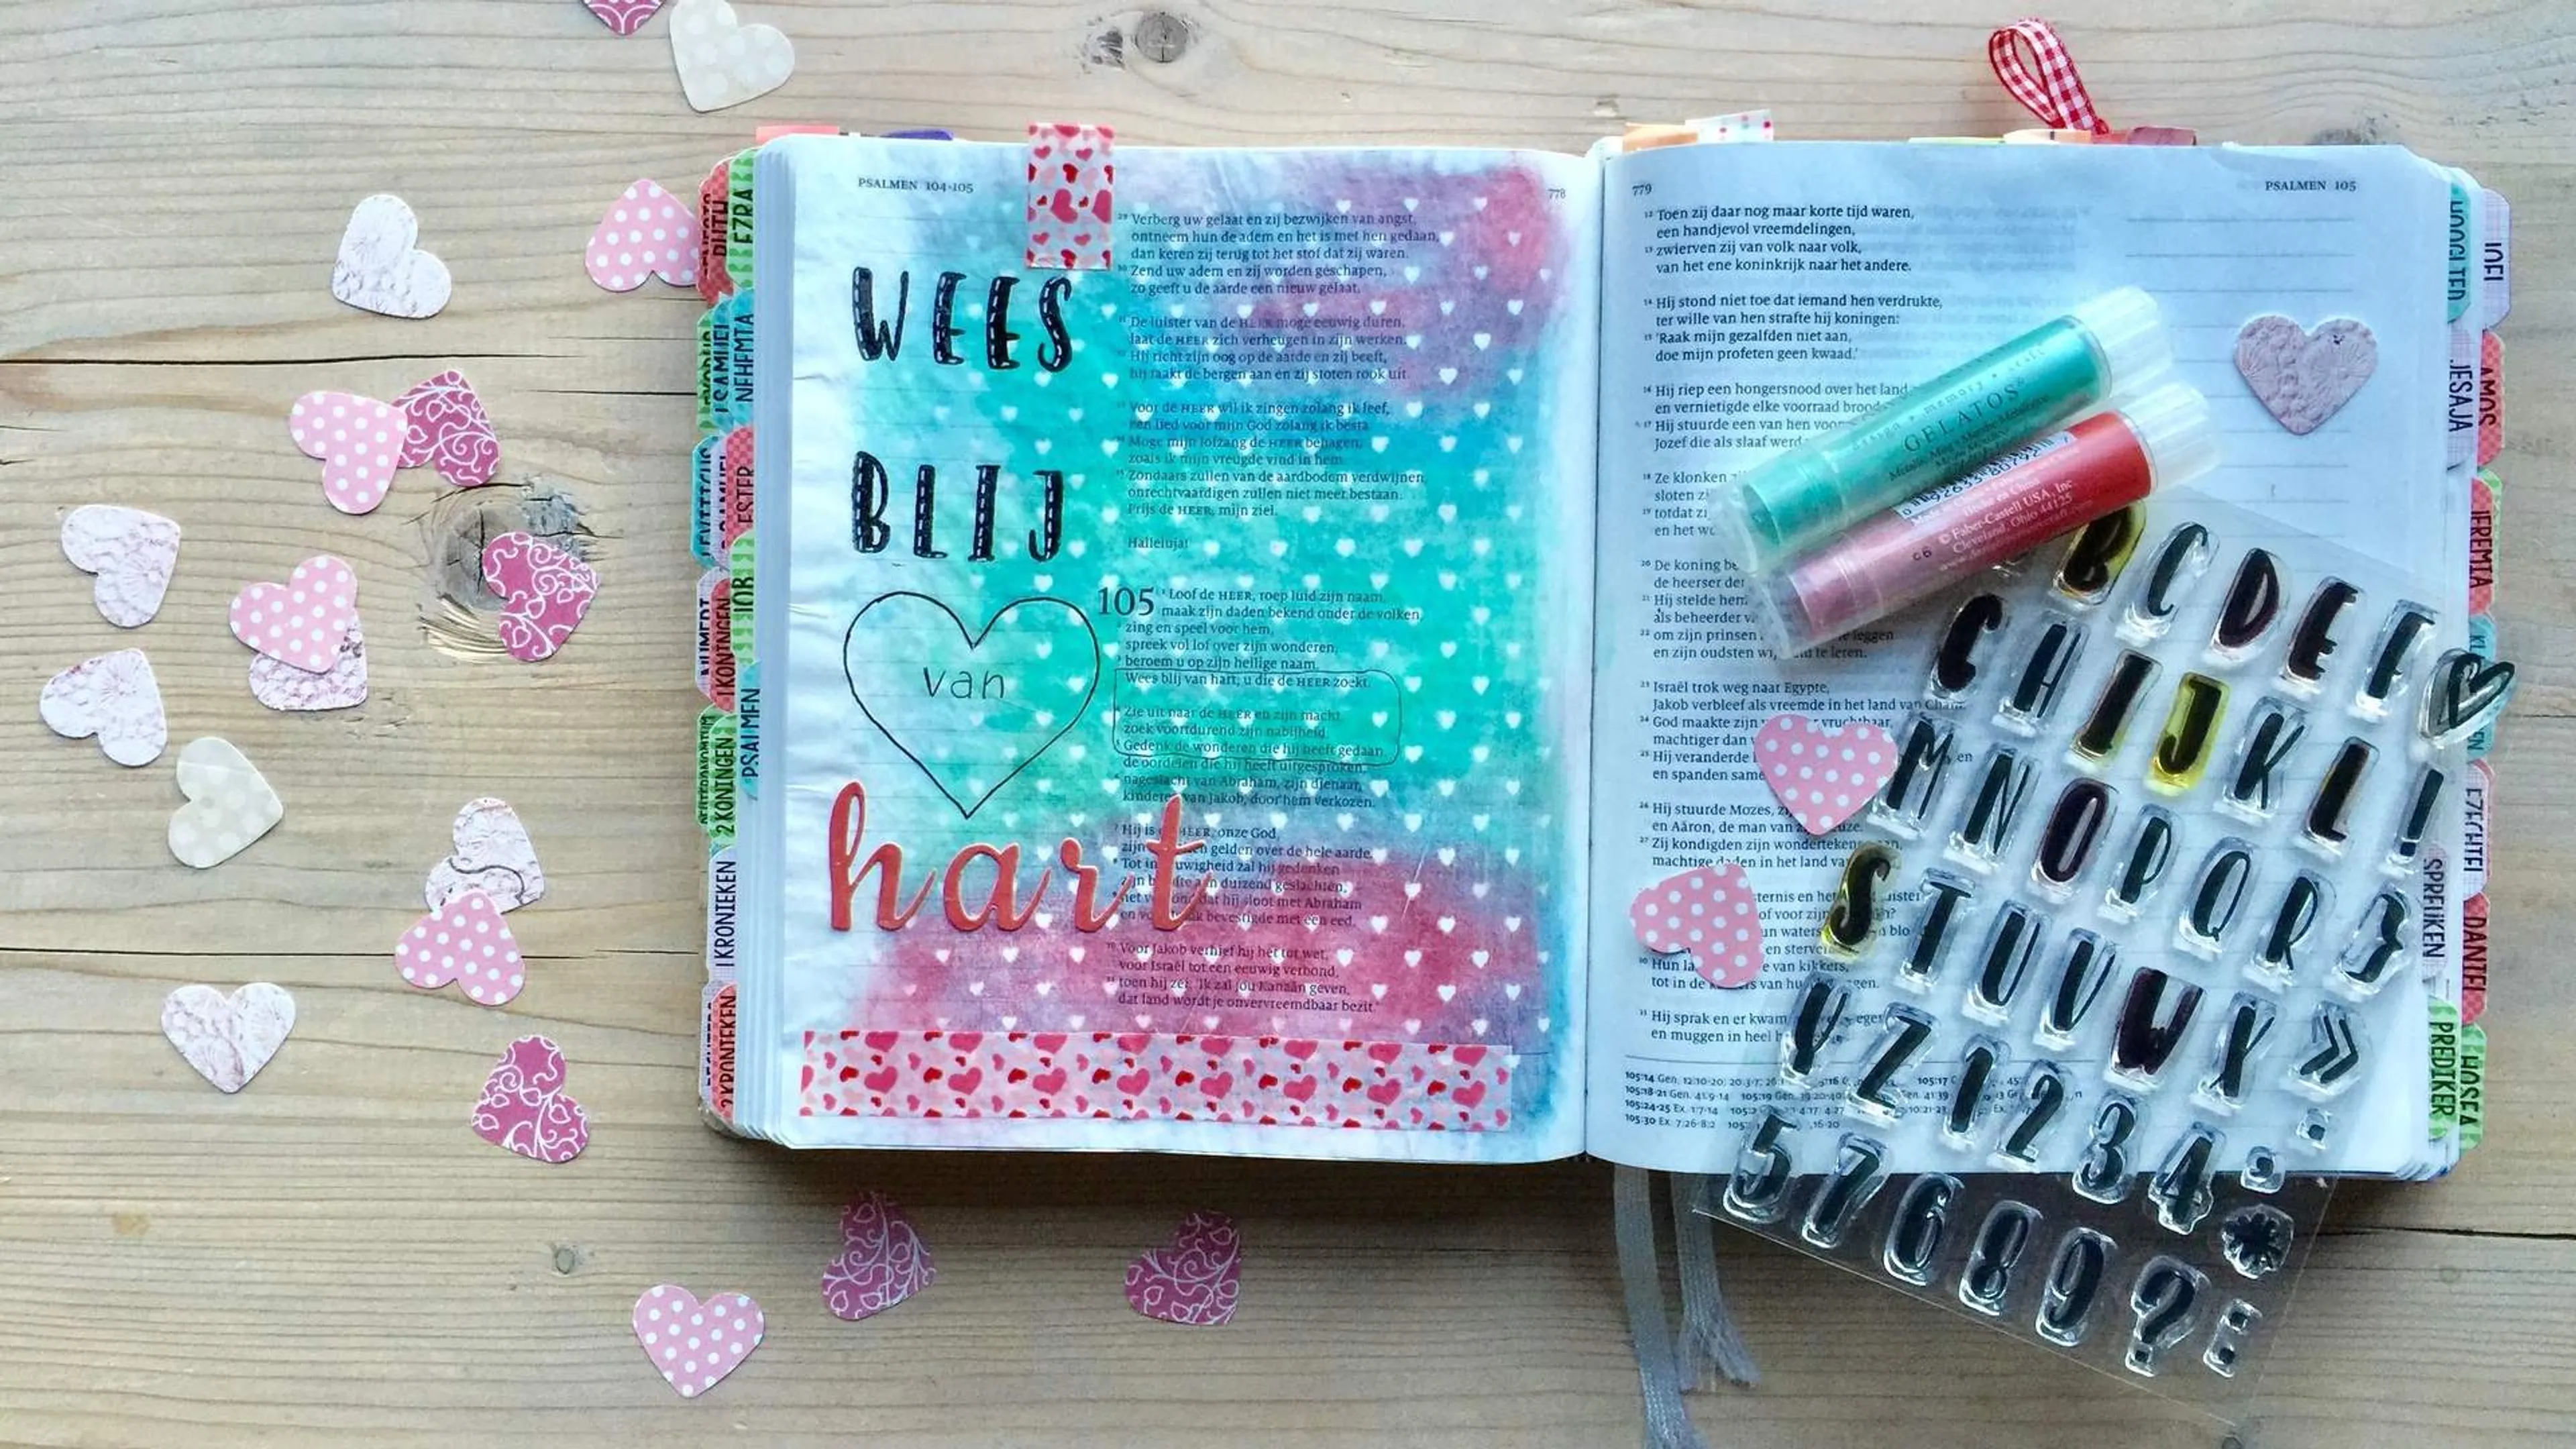 PSALMEN 104-105
778
WEES
BLIJ
van
hart
29 Verberg uw gelaat en zij bezwijken van angst,
ontneem hun de adem en het is met hen gedaan,
dan keren zij terug tot het stof dat zij waren.
30 Zend uw adem en zij worden geschapen,
zo geeft u de aarde een nieuw gelaat.
31 De luister van de HEER moge eeuwig duren,
laat de HEER zich verheugen in zijn werken.
32 Hij richt zijn oog op de aarde en zij beeft,
hij raakt de bergen aan en zij stoten rook uit.
33 Voor de HEER wil ik zingen zolang ik leef,
een lied voor mijn God zolang ik besta.
34 Moge mijn lofzang de HEER behagen,
zoals ik mijn vreugde vind in hem.
35 Zondaars zullen van de aardbodem verdwijnen,
onrechtvaardigen zullen niet meer bestaan.
Prijs de HEER, mijn ziel.
Halleluja!
105 1 Loof de HEER, roep luid zijn naam,
maak zijn daden bekend onder de volken,
2 zing en speel voor hem,
spreek vol lof over zijn wonderen,
3 beroem u op zijn heilige naam.
Wees blij van hart, u die de HEER zoekt.
4 Zie uit naar de HEER en zijn macht,
zoek voortdurend zijn nabijheid.
5 Gedenk de wonderen die hij heeft gedaan,
de oordelen die hij heeft uitgesproken,
6 nageslacht van Abraham, zijn dienaar,
kinderen van Jakob, door hem verkozen.
7 Hij is HEER, onze God,
zijn gelden over de hele aarde.
8 Tot in uwigheid zal hij gedenken
duizend geslachten,
dat hij sloot met Abraham
bevestigde met een eed.
10 Voor Jakob verhief hij het tot wet,
voor Israël tot een eeuwig verbond,
11 toen hij zei: 'Ik zal jou Kanaän geven,
dat land wordt je onvervreemdbaar bezit.'
779
PSALMEN 105
12 Toen zij daar nog maar korte tijd waren,
een handjevol vreemdelingen,
13 zwierven zij van volk naar volk,
van het ene koninkrijk naar het andere.
14 Hij stond niet toe dat iemand hen verdrukte,
ter wille van hen strafte hij koningen:
15 'Raak mijn gezalfden niet aan,
doe mijn profeten geen kwaad.'
16 Hij riep een hongersnood over het land
en vernietigde elke voorraad brood
17 Hij stuurde een van hen
Jozef die als slaaf werd
18 Ze klonken
sloten
19 totdat
en het
20 De koning
de heerser der
21 Hij stelde hem
als beheerder
22 om zijn prinsen leggen
en zijn oudsten te leren.
23 Israël trok weg naar Egypte,
Jakob verbleef als vreemde in het land van Cham.
24 God maakte zijn vruchtbaar,
machtiger dan
25 Hij veranderde
en spanden same
26 Hij stuurde Mozes,
en Aäron, de man van
27 Zij kondigden zijn wondertekens
machtige daden in het land
en het
of voor zijn
waters
en sterven
30 Hun van kikkers,
tot in de van
31 Hij sprak en er kwam
en muggen in heel
105:14 Gen. 12:10-20; 20:3-7; 105:17
105:18-21 Gen. 41:9-14 105:19 Gen. 39:20-40
105:24-25 Ex. 1:7-14
105:30 Ex. 7:26-8:2
GELATOS
© Faber-Castell USA, Inc.
Cleveland, Ohio 44125
B C D E F
G H I J K L !
M N O P Q R
S T U V W X
Y Z 1 2 3 4
5 7 6 8 9 ?
RUTH
EZRA
NEHEMIA
LEVITICUS
ESTER
NUMERI
1 KONINGEN
JOB
2 KONINGEN
PSALMEN
1 KRONIEKEN
2 KRONIEKEN
HOOGLIED
JOEL
JESAJA
AMOS
JEREMIA
EZECHIEL
SPREUKEN
DANIEL
PREDIKER
HOSEA